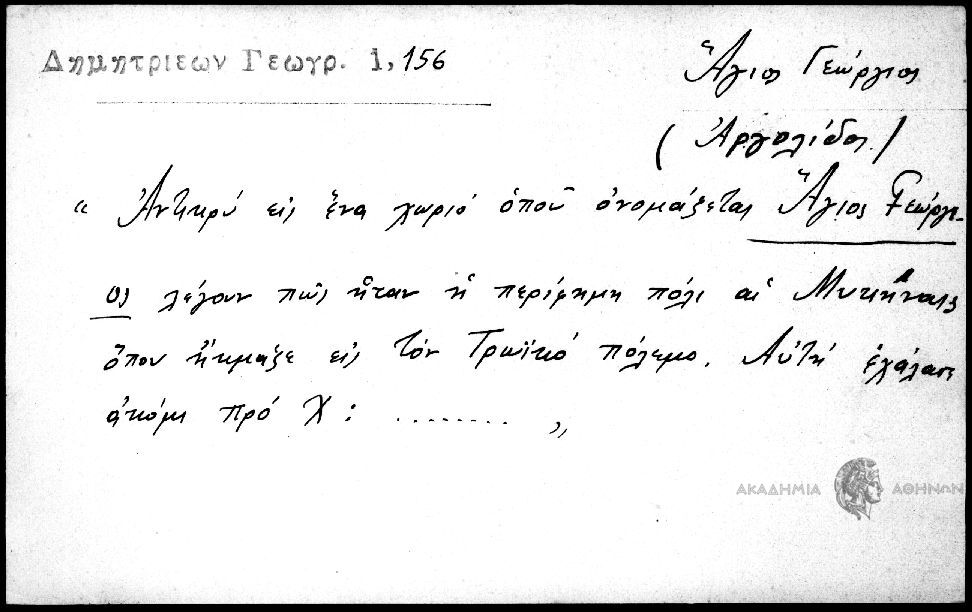 Δημητριεων Γεωγρ. 1, 156
Ἅγιος Γεώργιος
(Ἀργολίδα)
“ Ἀντικρύ εἰς ἕνα χωριό ὁποῦ ὀνομάζεται Ἅγιος Γεώργι-
ος λέγουν πῶς ἦταν ἡ περίφημη πόλι αἱ Μυκῆναις
ὅπου ἤκμαζε εἰς τόν Τρωϊκό πόλεμο. Αὐτή ἐχάλασε
ἀκόμι πρό Χ: ........ „
ΑΚΑΔΗΜΙΑ ΑΘΗΝΩΝ